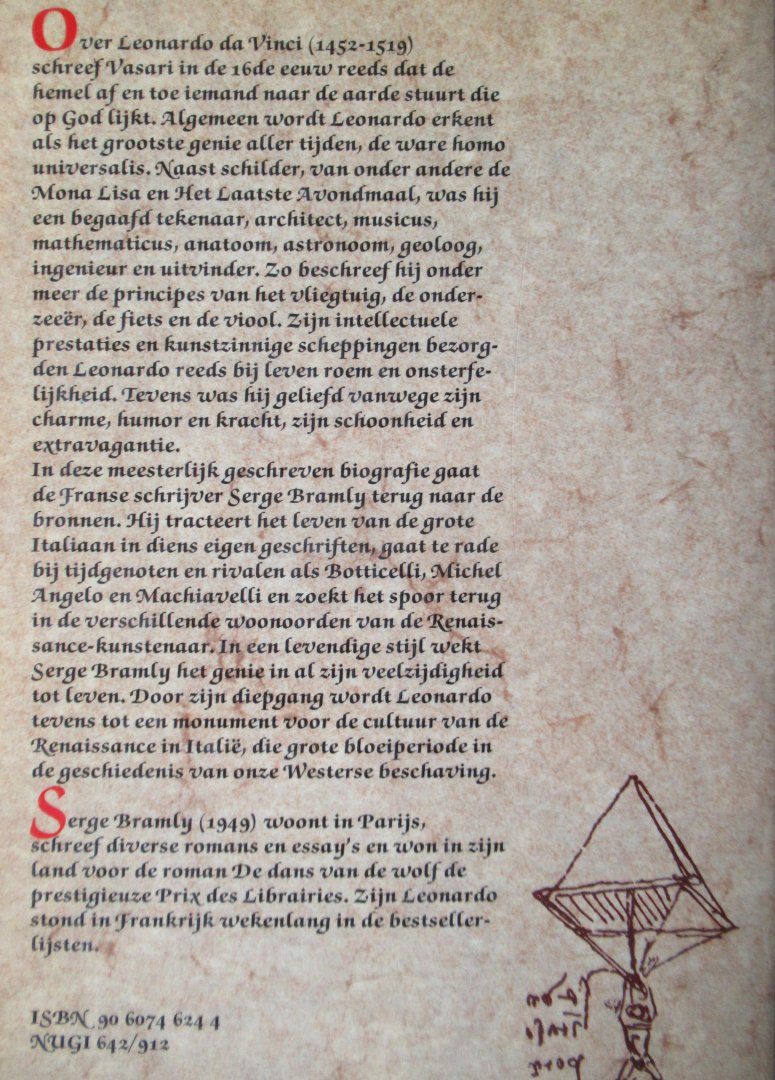 Over Leonardo da Vinci (1452-1519)
schreef Vasari in de 16de eeuw reeds dat de
hemel af en toe iemand naar de aarde stuurt die
op God lijkt. Algemeen wordt Leonardo erkent
als het grootste genie aller tijden, de ware homo
universalis. Naast schilder, van onder andere de
Mona Lisa en Het Laatste Avondmaal, was hij
een begaafd tekenaar, architect, musicus,
mathematicus, anatoom, astronoom, geoloog,
ingenieur en uitvinder. Zo beschreef hij onder
meer de principes van het vliegtuig, de onder-
zeeër, de fiets en de viool. Zijn intellectuele
prestaties en kunstzinnige scheppingen bezorg-
den Leonardo reeds bij leven roem en onsterfe-
lijkheid. Tevens was hij geliefd vanwege zijn
charme, humor en kracht, zijn schoonheid en
extravagantie.
In deze meesterlijk geschreven biografie gaat
de Franse schrijver Serge Bramly terug naar de
bronnen. Hij tracteert het leven van de grote
Italiaan in diens eigen geschriften, gaat te rade
bij tijdgenoten en rivalen als Botticelli, Michel
Angelo en Machiavelli en zoekt het spoor terug
in de verschillende woonoorden van de Renais-
sance-kunstenaar. In een levendige stijl wekt
Serge Bramly het genie in al zijn veelzijdigheid
tot leven. Door zijn diepgang wordt Leonardo
tevens tot een monument voor de cultuur van de
Renaissance in Italië, die grote bloeiperiode in
de geschiedenis van onze Westerse beschaving.
Serge Bramly (1949) woont in Parijs,
schreef diverse romans en essay's en won in zijn
land voor de roman De dans van de wolf de
prestigieuze Prix des Librairies. Zijn Leonardo
stond in Frankrijk wekenlang in de bestseller-
lijsten.
ISBN 90 6074 624 4
NUGI 642/912